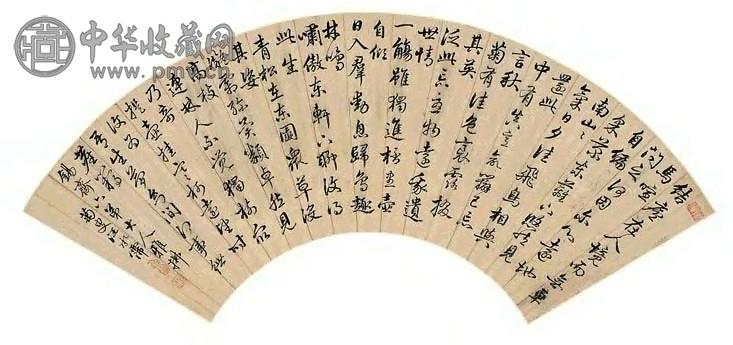 中华收藏网
www.pmcn.cn
結廬在人境而無車
馬喧
問君何能爾心遠地
自偏
采菊東籬下悠然見
南山
山氣日夕佳飛鳥相與
還此
中有真意欲辨已忘
言秋
菊有佳色裛露掇
其英
泛此忘憂物遠我遺
世情
一觴雖獨進杯盡壺
自傾
日入群動息歸鳥趣
林鳴
嘯傲東軒下聊復得
此生
青松在東園衆草沒
其姿
凝霜殄異類卓然見
高枝
連林人不覺獨樹衆
乃奇
提壺挂寒柯遠望時
復為
吾生夢幻間何事紲
塵羈
錫齋六弟大人雅